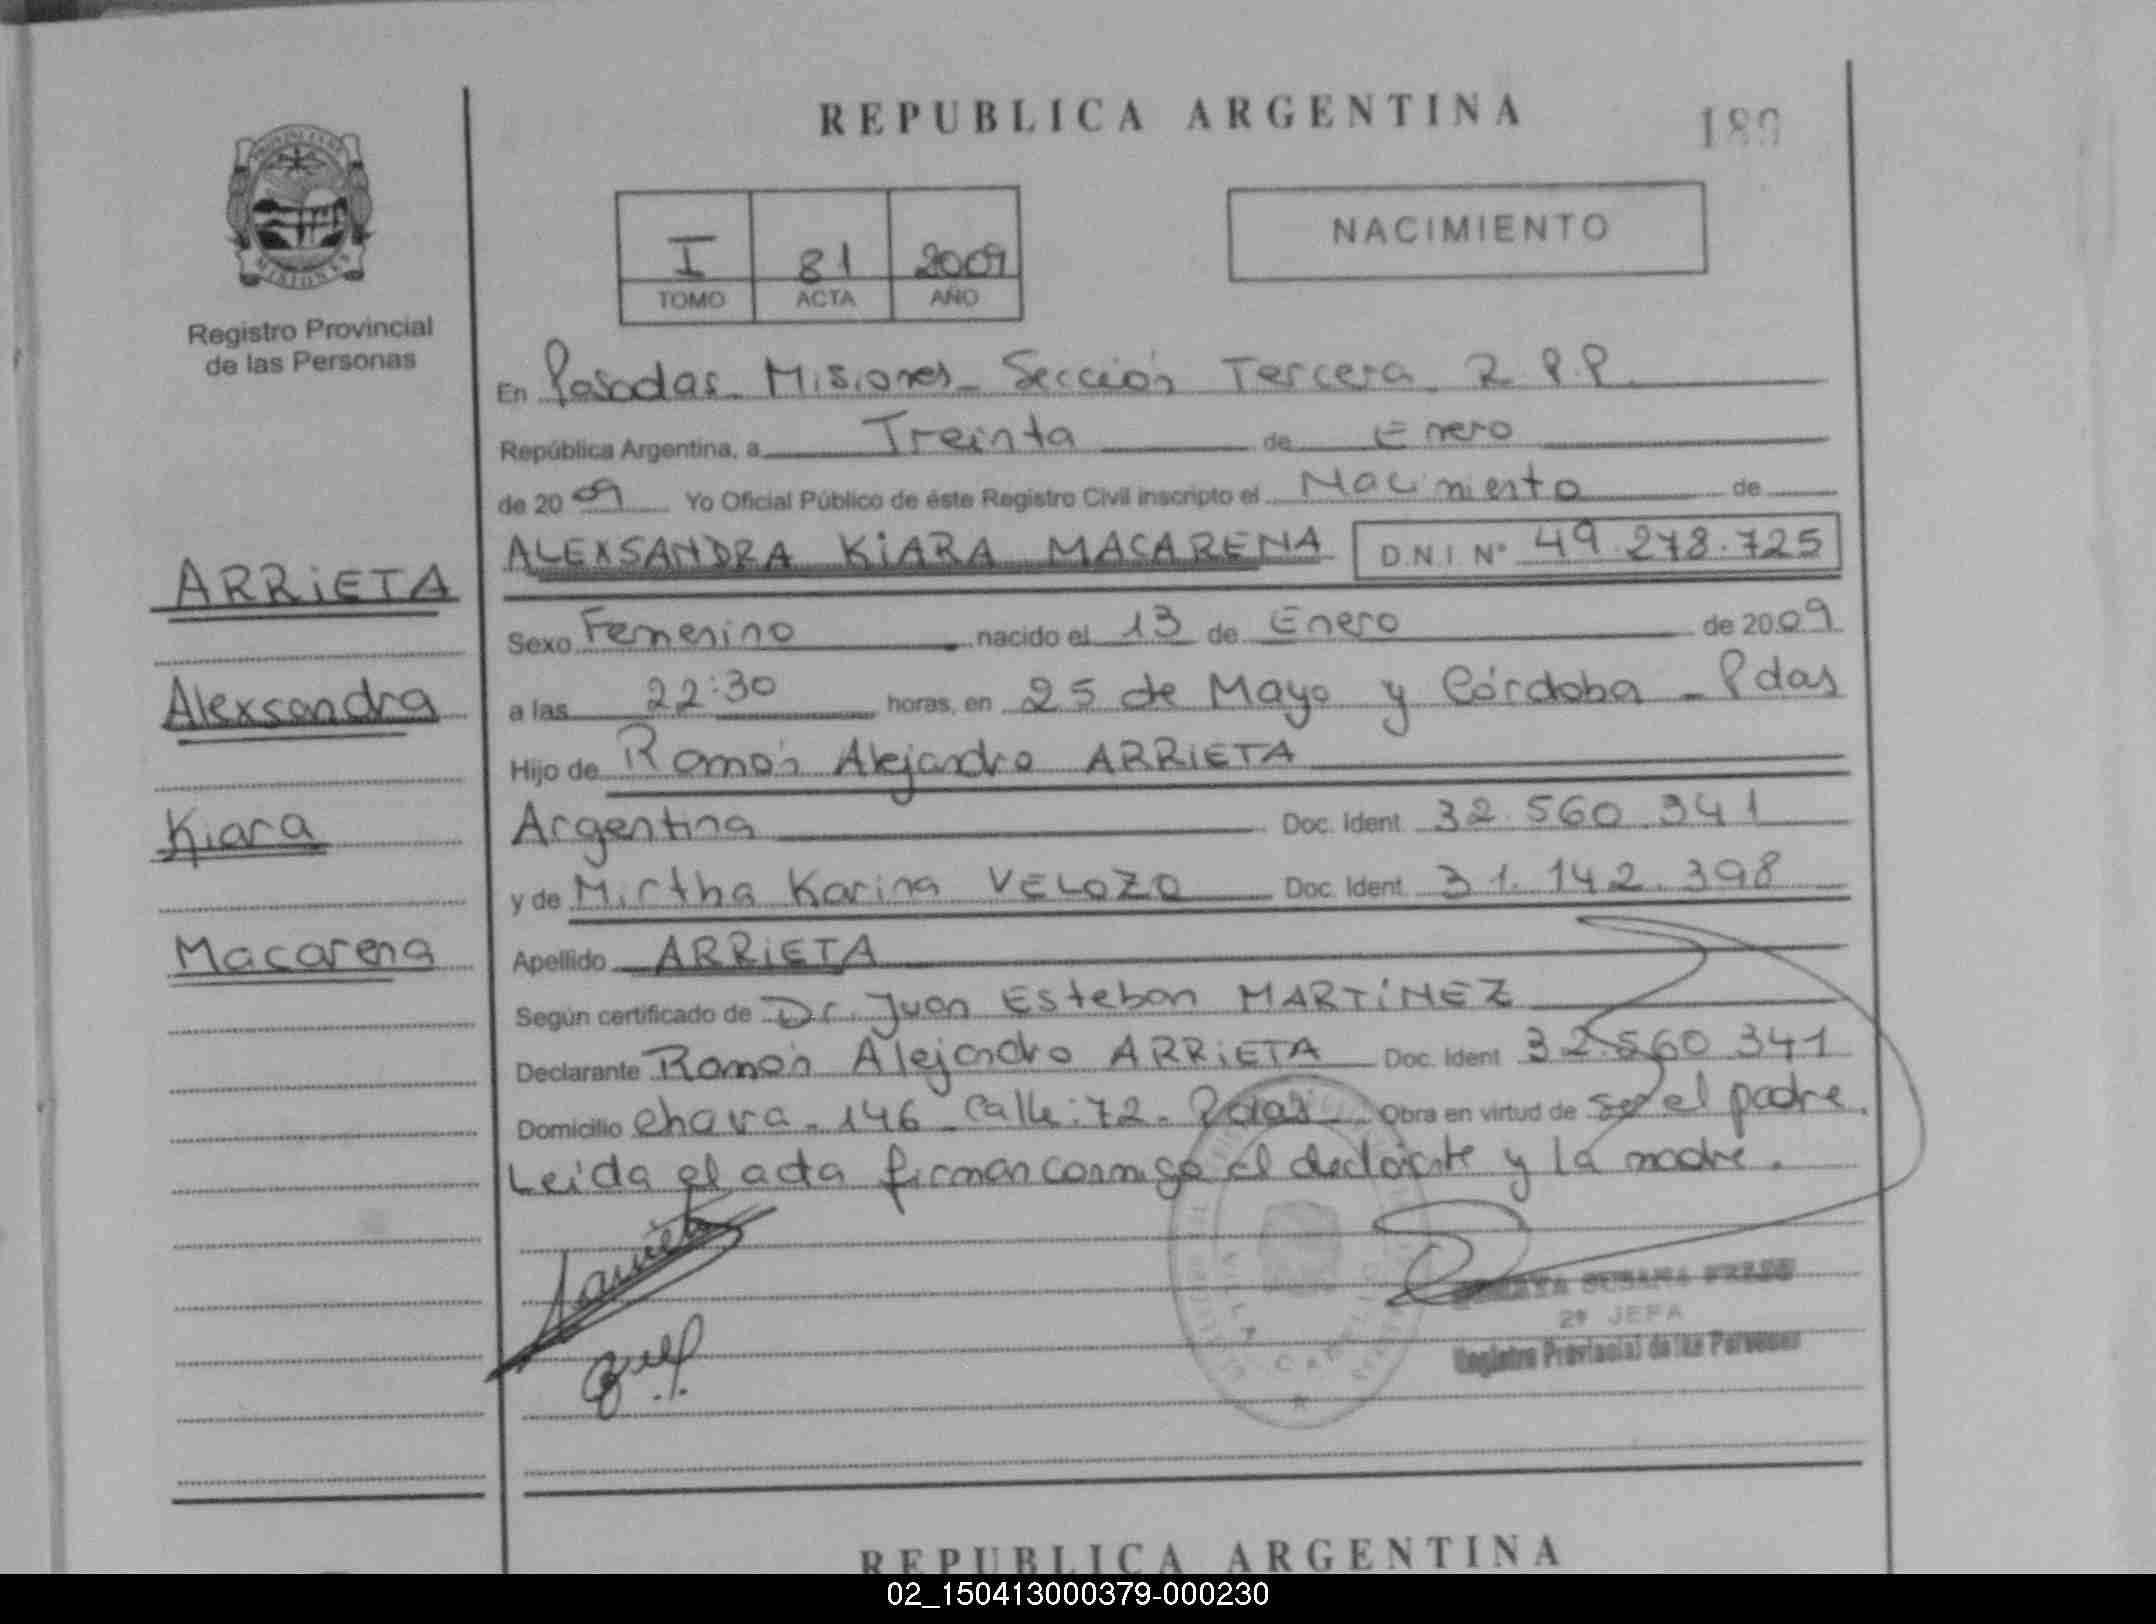 REPUBLICA ARGENTINA
189
PROVINCIA DE
MISIONES
Registro Provincial
de las Personas
I 81 2009
TOMO ACTA AÑO
NACIMIENTO
En Posadas Misiones Sección Tercera. R.P.P.
República Argentina, a Treinta de Enero
de 2009 Yo Oficial Público de éste Registro Civil inscripto el Nacimiento de
ALEXSANDRA KIARA MACARENA D.N.I. Nº 49.278.725
ARRIETA
Sexo Femenino nacido el 13 de Enero de 2009
Alexsandra
a las 22:30 horas, en 25 de Mayo y Córdoba - Pdas
Hijo de Ramón Alejandro ARRIETA
Kiara
Argentina Doc. Ident. 32.560.341
y de Mirtha Karina VELOZO Doc. Ident. 31.142.398
Macarena
Apellido ARRIETA
Según certificado de Dr. Juan Esteban MARTÍNEZ
Declarante Ramón Alejandro ARRIETA Doc. Ident 32.560.341
Domicilio chacra. 146 Calle: 72. Pdas Obra en virtud de ser el padre.
Leida el acta firman conmigo el declarante y la madre.
SUSANA
2º JEFA
Registro Provincial de las Personas
REPUBLICA ARGENTINA
02_150413000379-000230